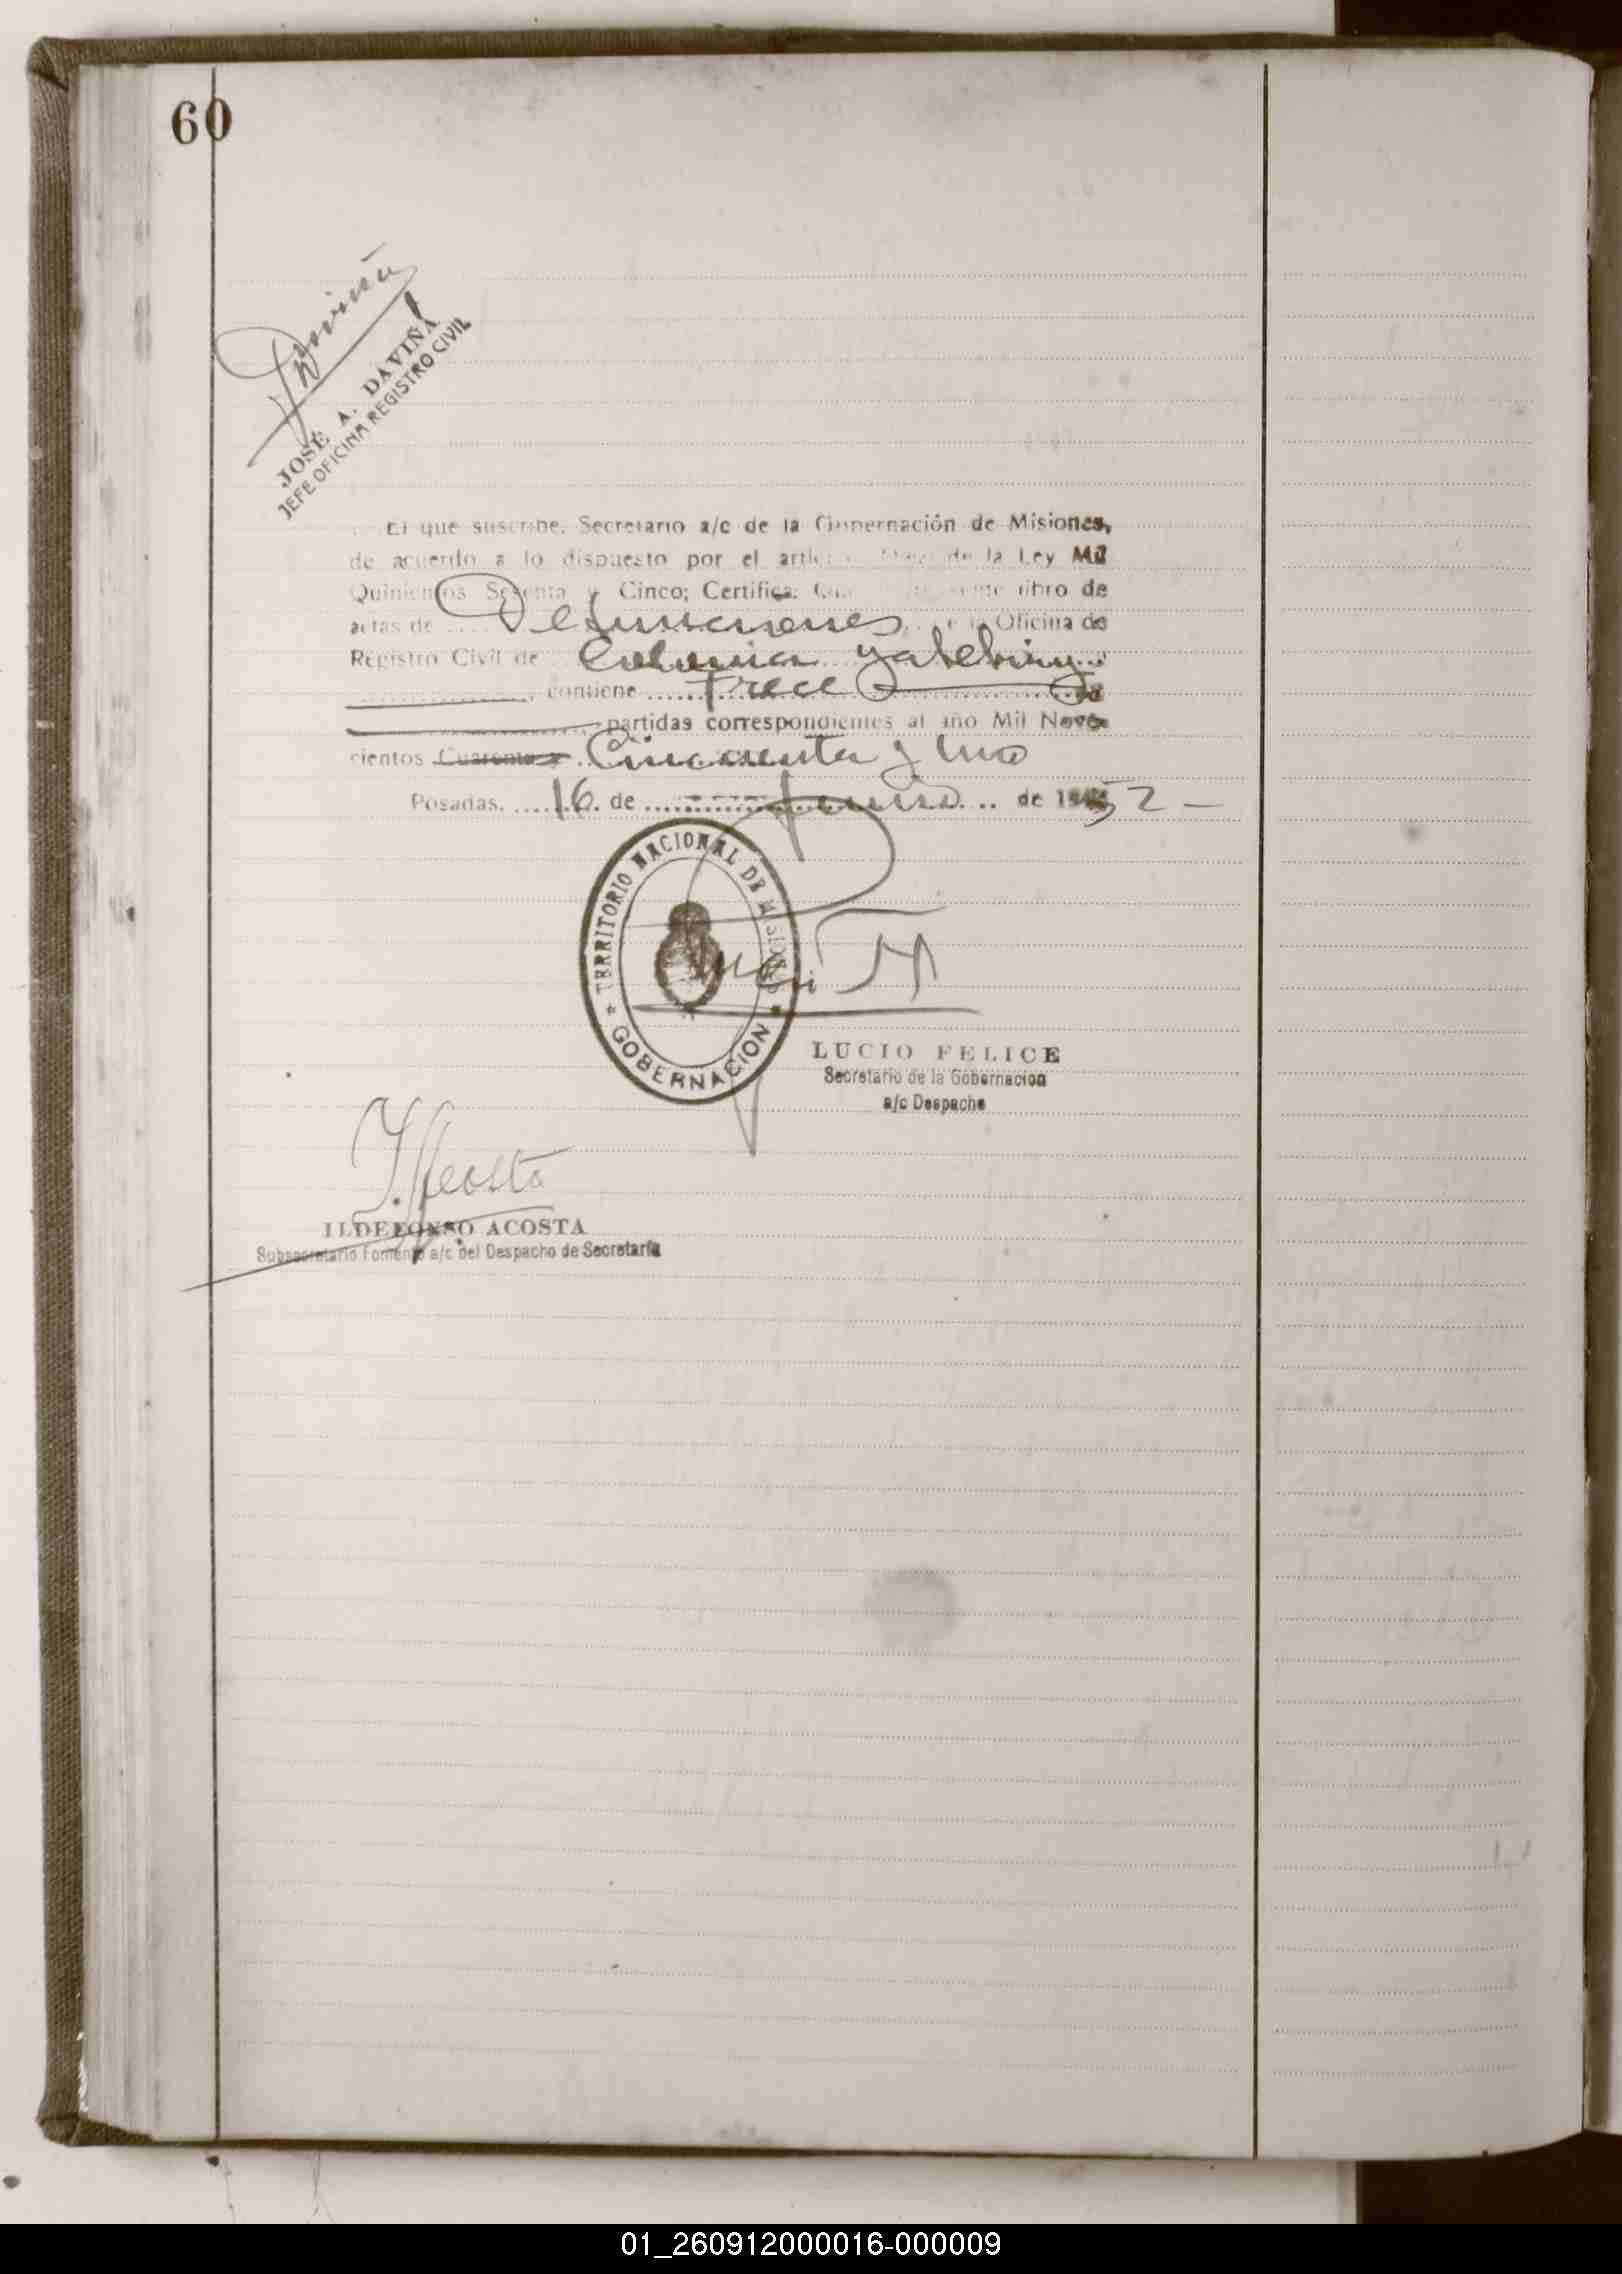 60
Daviña
JOSÉ A. DAVIÑA
JEFE OFICINA REGISTRO CIVIL
El que suscribe, Secretario a/c de la Gobernación de Misiones,
de acuerdo a lo dispuesto por el artículo de la Ley Mil
Quinientos Sesenta y Cinco; Certifica: Que libro de
actas de Defunciones, de la Oficina de
Registro Civil de Colonia Yabebiry
, contiene Trece
partidas correspondientes al año Mil Nove-
cientos Cuarenta y Cincuenta y Uno
Posadas, 16 de junio de 1952 —
TERRITORIO NACIONAL DE MISIONES
GOBERNACION
LUCIO FELICE
Secretario de la Gobernacion
a/c Despacho
I. Acosta
ILDEFONSO ACOSTA
Subsecretario Fomento a/c del Despacho de Secretaría
01_260912000016-000009